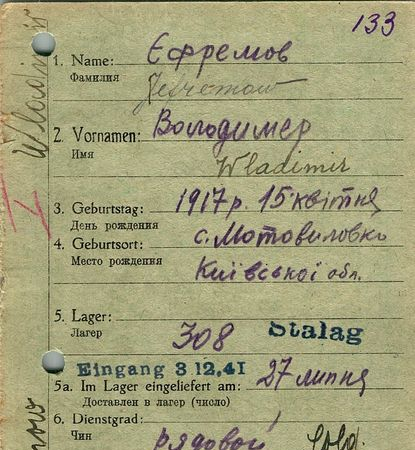 133
1. Name: Єфремов
Фамилия Jefremow
2. Vornamen: Володимер
Имя Wladimir
3. Geburtstag: 1917 р. 15 квітня
День рождения
4. Geburtsort: с. Мотовиловка
Место рождения Київської обл.
5. Lager: 308 Stalag
Лагер
Eingang 3 12.41
5a. Im Lager eingeliefert am: 27 липня
Доставлен в лагер (число)
6. Dienstgrad:
Чин рядовой Sold.
Wladimir